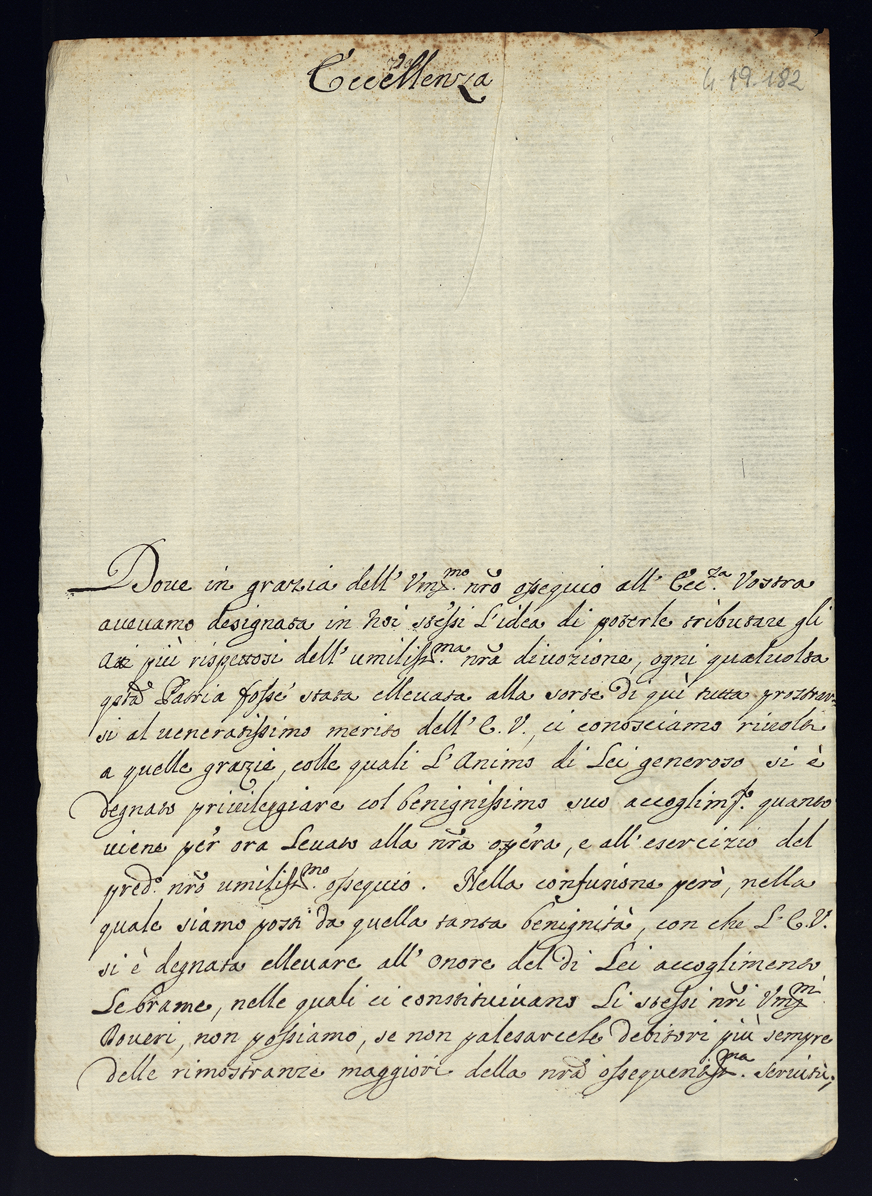 Eccellenza
4 19. 182
Dove in grazia dell' Vm.mo nrõ ossequio all' Ecc.za Vostra
avevamo designata in Noi stessi L'idea di poterle tributare gli
Atti più rispettosi dell' umiliss.ma nrã divozione, ogni qualvolta
qstã Patria fosse stata ellevata alla sorte di quì tutta prostrar-
si al veneratissimo merito dell' E. V., ci conosciamo rivolti
a quelle grazie, colle quali L'Animo di Lei generoso si è
degnato privileggiare col benignissimo suo accoglim.to quanto
viene per ora Levato alla nrã opera, e all' esercizio del
pred.o nrõ umiliss.mo ossequio. Nella confusione però, nella
quale siamo posti da quella tanta benignità, con che L' E. V.
si è degnata ellevare all' onore del di Lei accoglimento
Le brame, nelle quali ci constituivano Li stessi nrĩ Vm.mi
Doveri, non possiamo, se non palesarcele debitori più sempre
delle rimostranze maggiori della nrã ossequentiss.ma servitù,